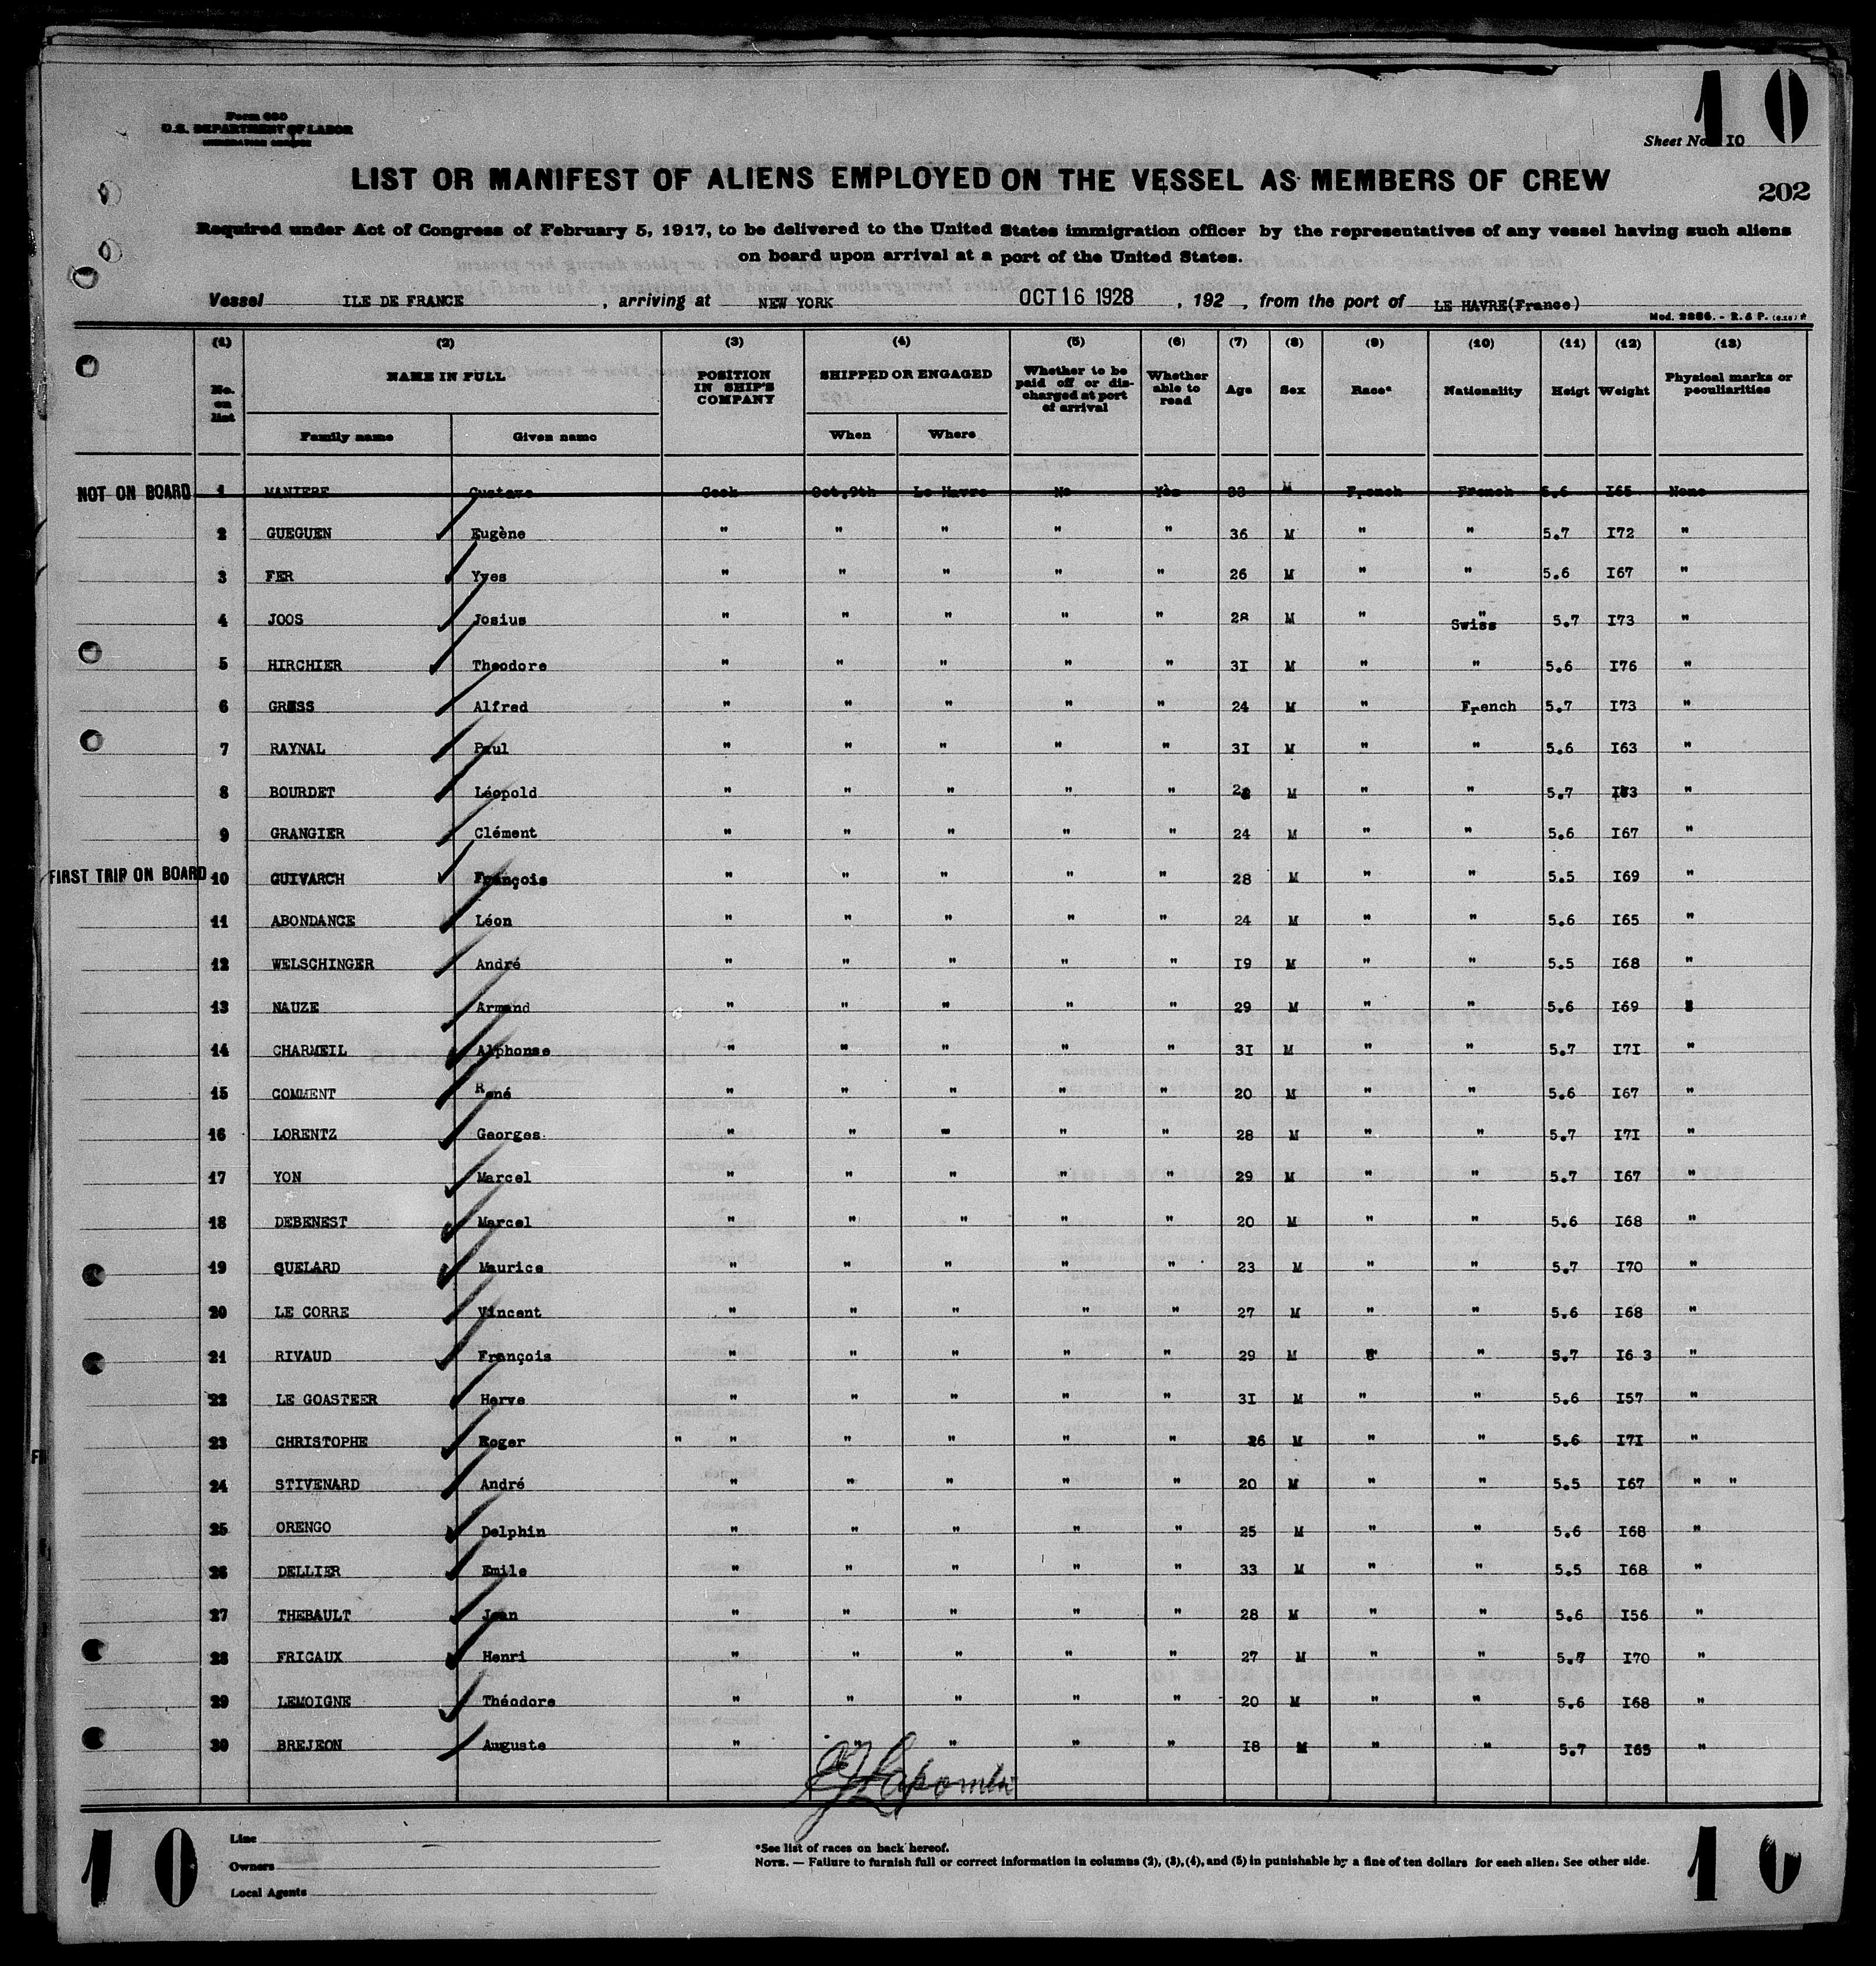 10
Form 680
U.S. DEPARTMENT OF LABOR
IMMIGRATION SERVICE
Sheet No. I0
LIST OR MANIFEST OF ALIENS EMPLOYED ON THE VESSEL AS MEMBERS OF CREW
202
Required under Act of Congress of February 5, 1917, to be delivered to the United States immigration officer by the representatives of any vessel having such aliens
on board upon arrival at a port of the United States.
Vessel ILE DE FRANCE , arriving at NEW YORK OCT 16 1928 , 192 , from the port of LE HAVRE(France)
Mod. 2286. - R. & P.
(1) (2) (3) (4) (5) (6) (7) (8) (9) (10) (11) (12) (13)
No. on list NAME IN FULL POSITION IN SHIP'S COMPANY SHIPPED OR ENGAGED Whether to be paid off or discharged at port of arrival Whether able to read Age Sex Race* Nationality Heigt Weight Physical marks or peculiarities
Family name Given name When Where
NOT ON BOARD 1 MANIERE Gustave Cook Oct,9th Le Havre No Yès 38 M French French 5.6 I65 None
2 GUEGUEN Eugène " " " " " 36 M " " 5.7 I72 "
3 FER Yves " " " " " 26 M " " 5.6 I67 "
4 JOOS Josius " " " " " 28 M " " Swiss 5.7 I73 "
5 HIRCHIER Theodore " " " " " 3I M " " 5.6 I76 "
6 GRESS Alfred " " " " " 24 M " French 5.7 I73 "
7 RAYNAL Paul " " " " " 3I M " " 5.6 I63 "
8 BOURDET Léopold " " " " " M " " 5.7 "
9 GRANGIER Clément " " " " " 24 M " " 5.6 I67 "
FIRST TRIP ON BOARD 10 GUIVARCH François " " " " " 28 M " " 5.5 I69 "
11 ABONDANCE Léon " " " " " 24 M " " 5.6 I65 "
12 WELSCHINGER André " " " " " I9 M " " 5.5 I68 "
13 NAUZE Armand " " " " " 29 M " " 5.6 I69
14 CHARMEIL Alphonse " " " " " 3I M " " 5.7 I7I "
15 COMMENT René " " " " " 20 M " " 5.6 I67 "
16 LORENTZ Georges " " " " " 28 M " " 5.7 I7I "
17 YON Marcel " " " " " 29 M " " 5.7 I67 "
18 DEBENEST Marcel " " " " " 20 M " " 5.6 I68 "
19 QUELARD Maurice " " " " " 23 M " " 5.7 I70 "
20 LE CORRE Vincent " " " " " 27 M " " 5.6 I68 "
21 RIVAUD François " " " " " 29 M " " 5.7 I6 3 "
22 LE GOASTEER Herve " " " " " 3I M " " 5.6 I57 "
23 CHRISTOPHE Roger " " " " " " 26 M " " 5.6 I7I "
24 STIVENARD André " " " " " 20 M " " 5.5 I67 " "
25 ORENGO Delphin " " " " " 25 M " " 5.6 I68 "
26 DELLIER Emile " " " " " 33 M " " 5.5 I68 "
27 THEBAULT Jean " " " " " 28 M " " 5.6 I56 "
28 FRICAUX Henri " " " " " 27 M " " 5.7 I70 "
29 LEMOIGNE Théodore " " " " " 20 M " " 5.6 I68 "
30 BREJEON Auguste " " " " " I8 M " " 5.7 I65 "
10
Line
Owners
Local Agents
*See list of races on back hereof.
NOTE. — Failure to furnish full or correct information in columns (2), (3), (4), and (5) in punishable by a fine of ten dollars for each alien. See other side.
10